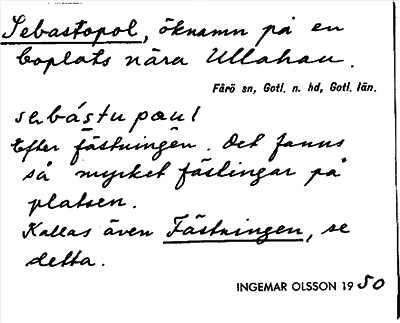 Sebastopol, öknamn på en
boplats nära Ullahau.
Fårö sn, Gotl. n. hd, Gotl. län.
sebástupæul
Efter fästningen. Det fanns
så mycket fästingar på
platsen.
Kallas även Fästningen, se
detta.
INGEMAR OLSSON 1950